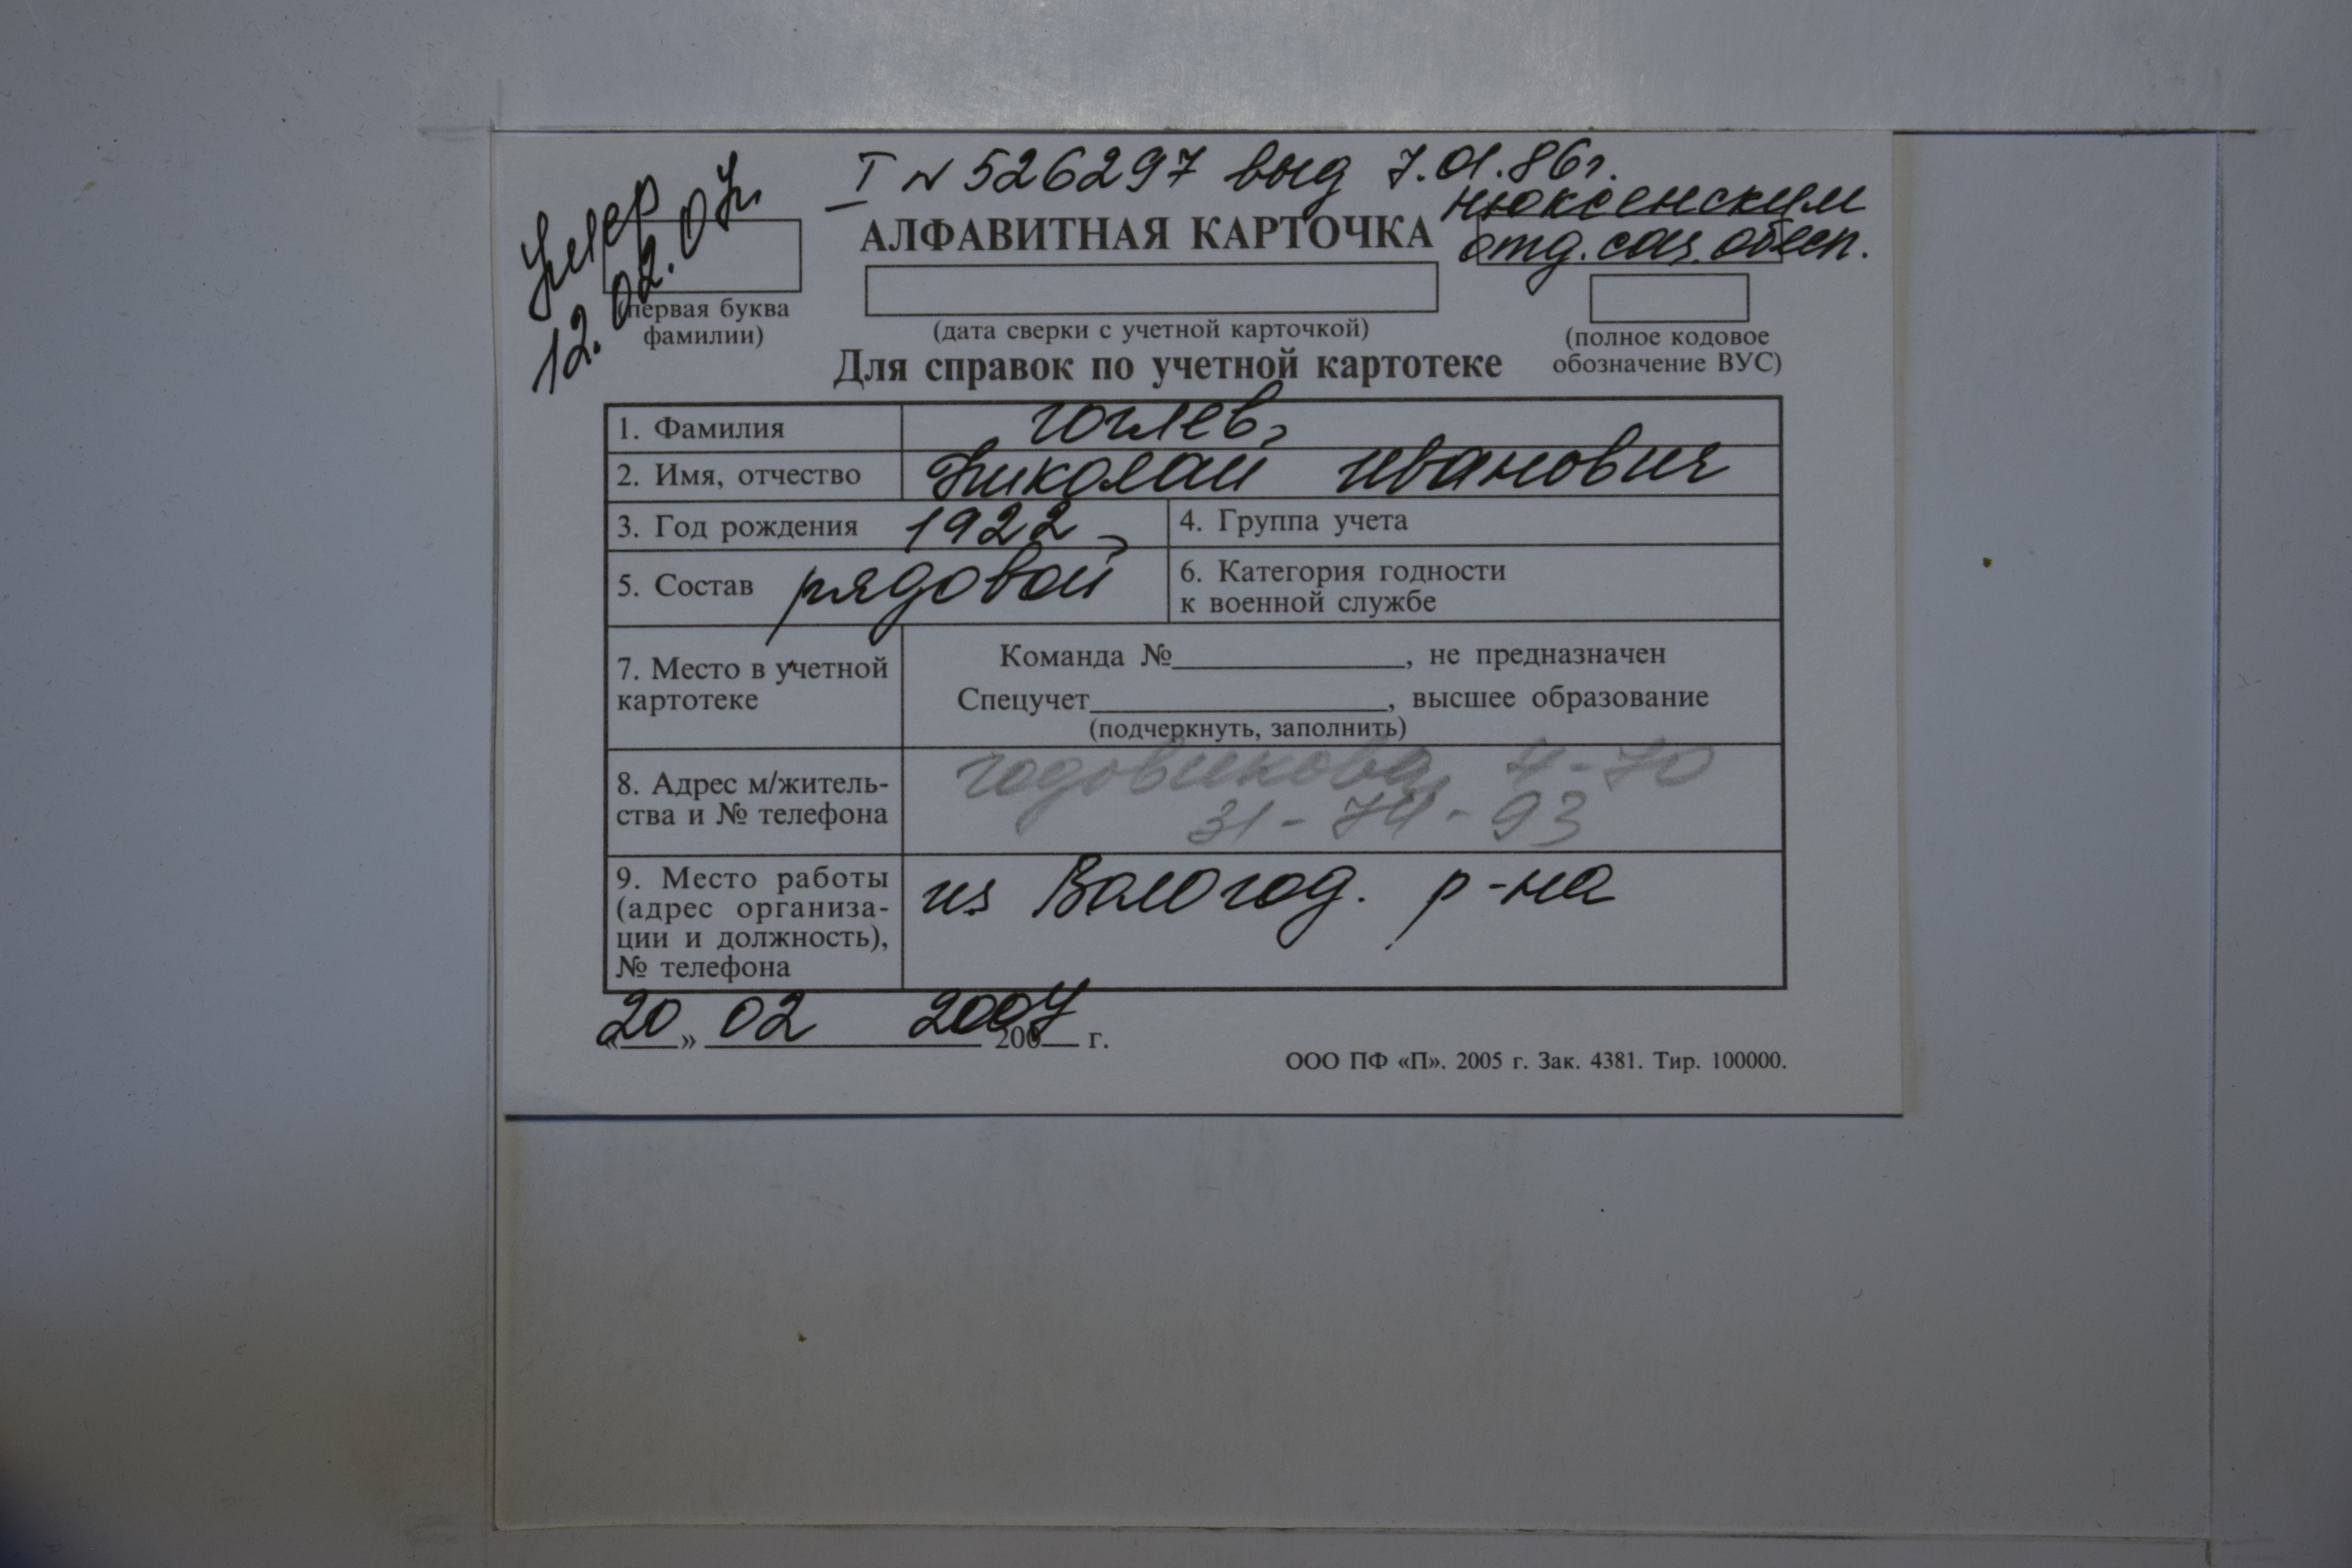 I N 526297 выд 7.01.86г.
Нюксенским
отд. соц. обесп.
Умер
12.02.07г.
АЛФАВИТНАЯ КАРТОЧКА
(первая буква
фамилии)
(дата сверки с учетной карточкой)
(полное кодовое
обозначение ВУС)
Для справок по учетной картотеке
1. Фамилия Гоглев,
2. Имя, отчество Николай Иванович
3. Год рождения 1922
4. Группа учета
5. Состав рядовой
6. Категория годности
к военной службе
7. Место в учетной
картотеке
Команда №____, не предназначен
Спецучет____, высшее образование
(подчеркнуть, заполнить)
8. Адрес м/житель-
ства и № телефона
Годовикова, 4-70
31-74-93
9. Место работы
(адрес организа-
ции и должность),
№ телефона
из Вологод. р-на
«20» 02 2007 200__ г.
ООО ПФ «П». 2005 г. Зак. 4381. Тир. 100000.